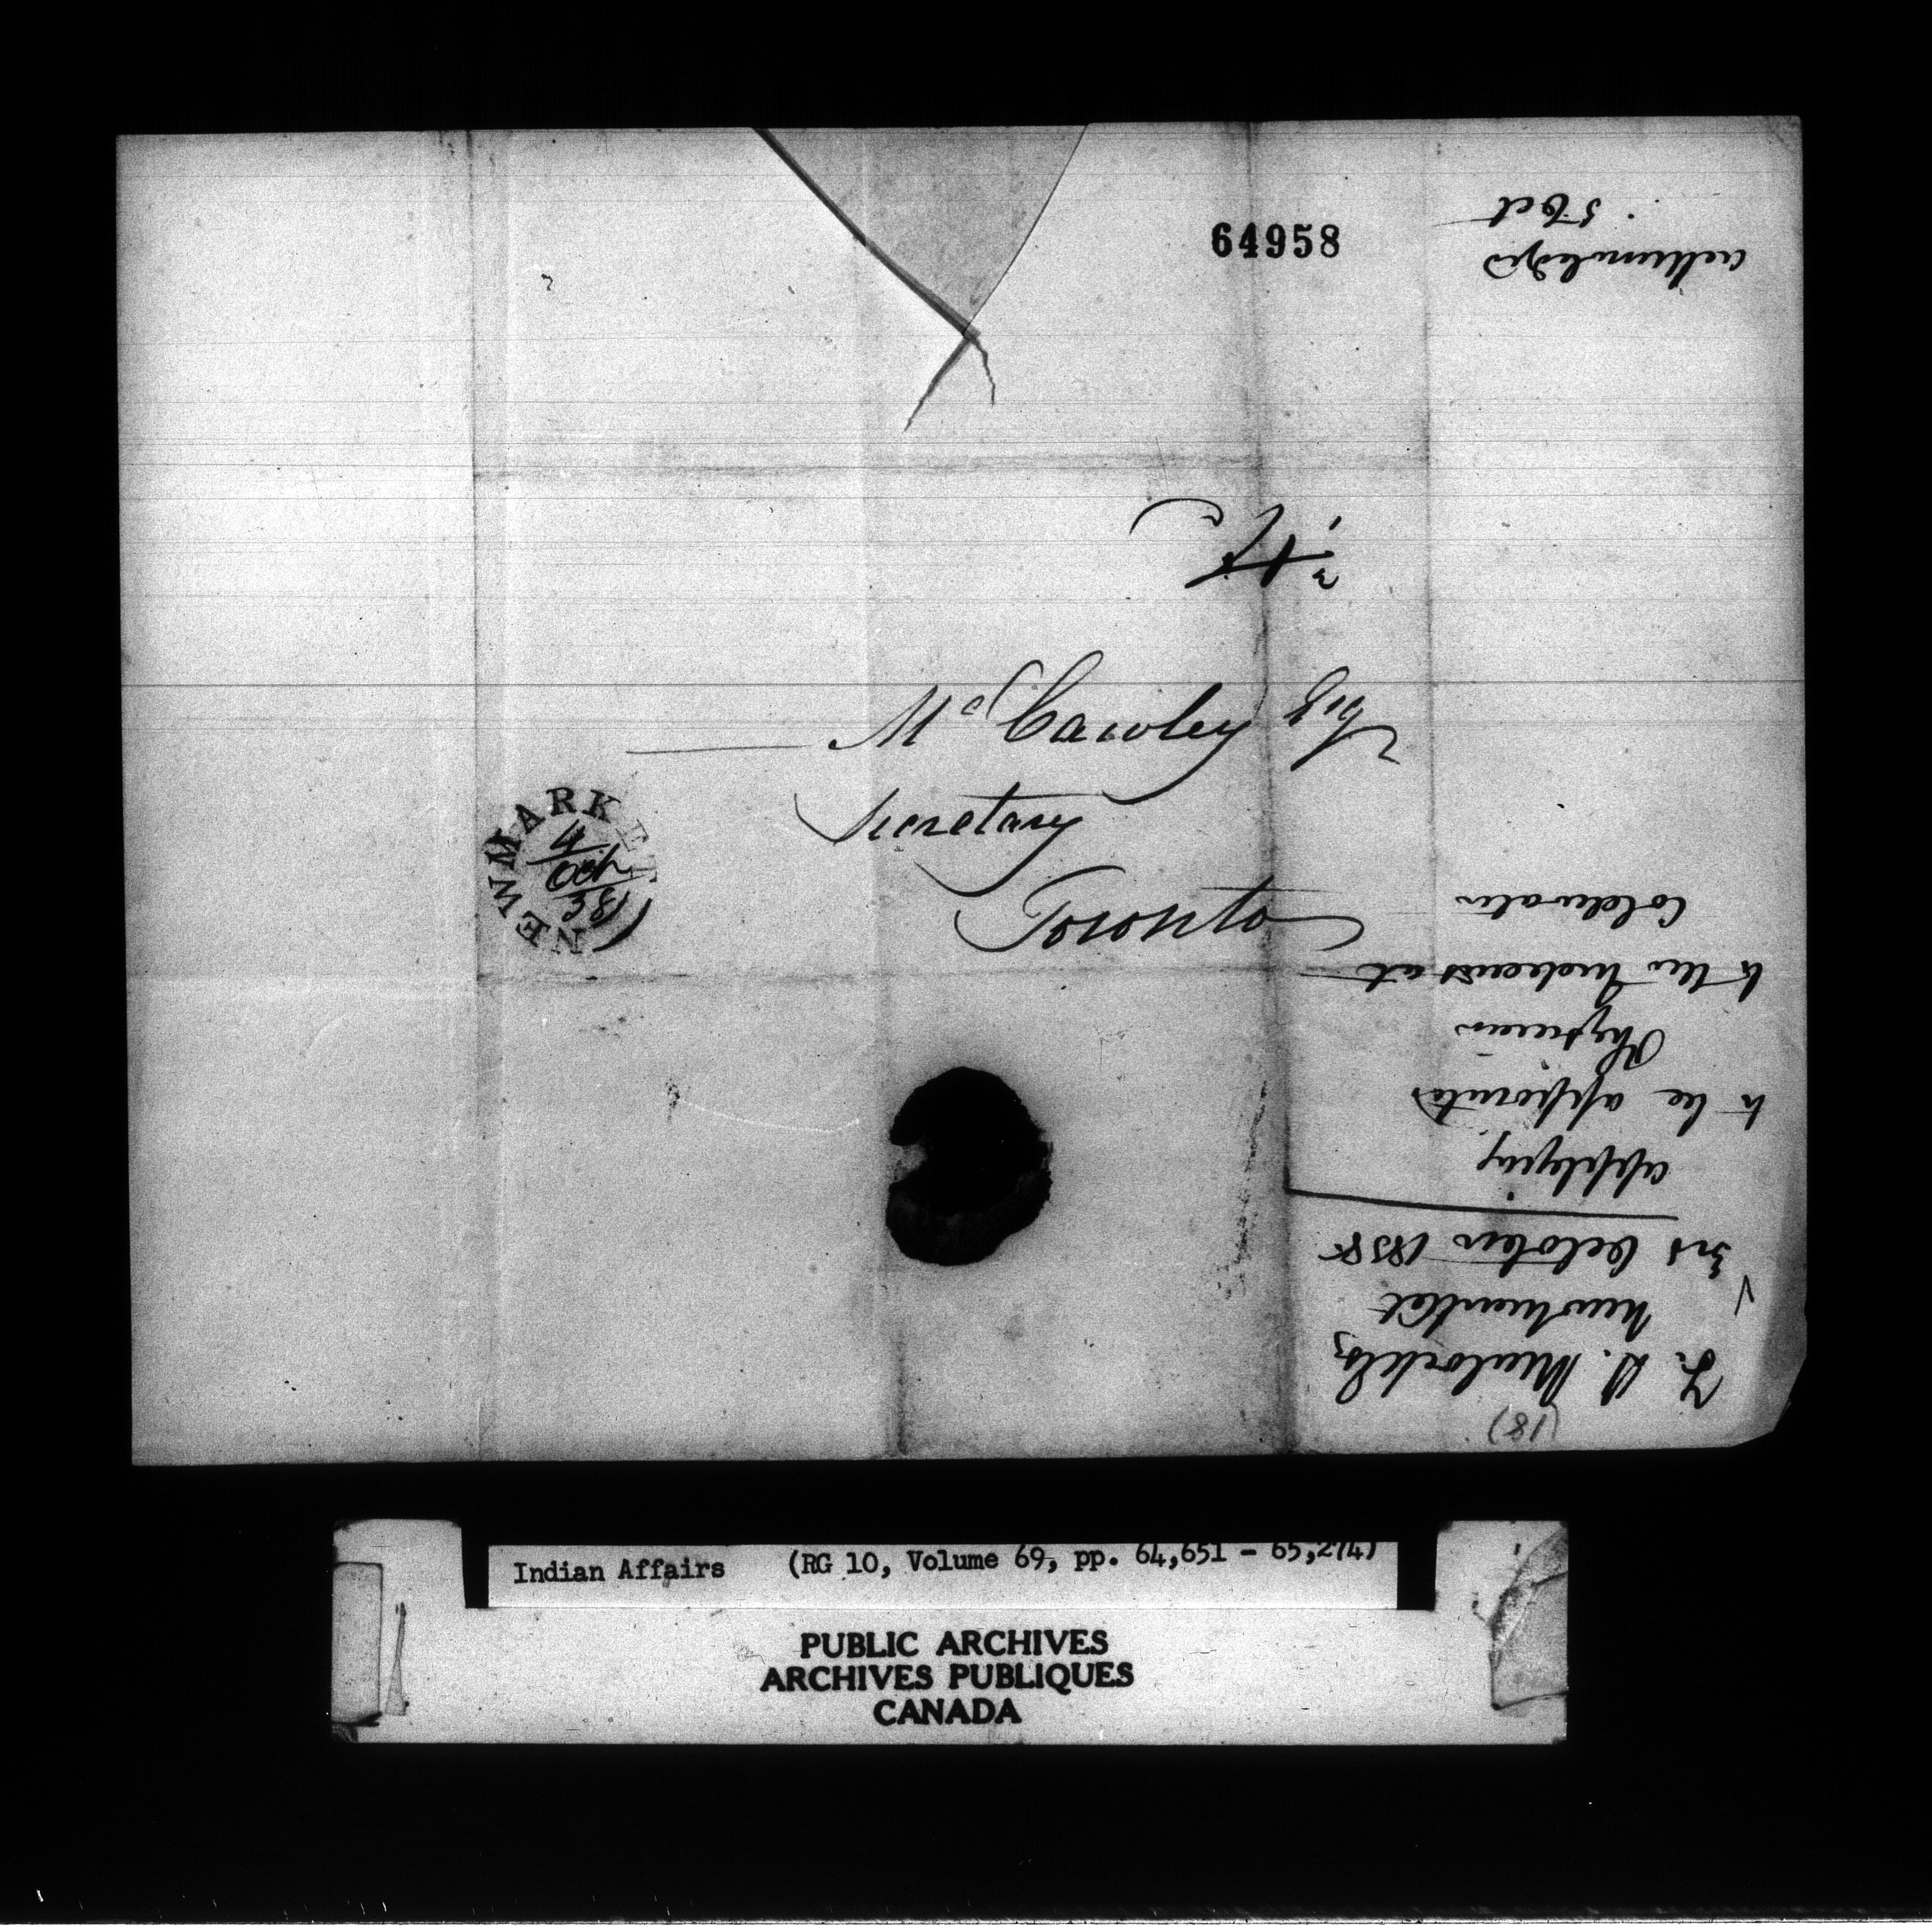 64958
McCawley Esq
Secretary
Toronto
NEWMARKET
4
Oct
38
(81)
Newmarket
3rd October 1838
applying
to be appointed
Physician
to the Indians at
Coldwater
acknowledged
5 Oct
Indian Affairs (RG 10, Volume 69, pp. 64,651 - 65,274)
PUBLIC ARCHIVES
ARCHIVES PUBLIQUES
CANADA